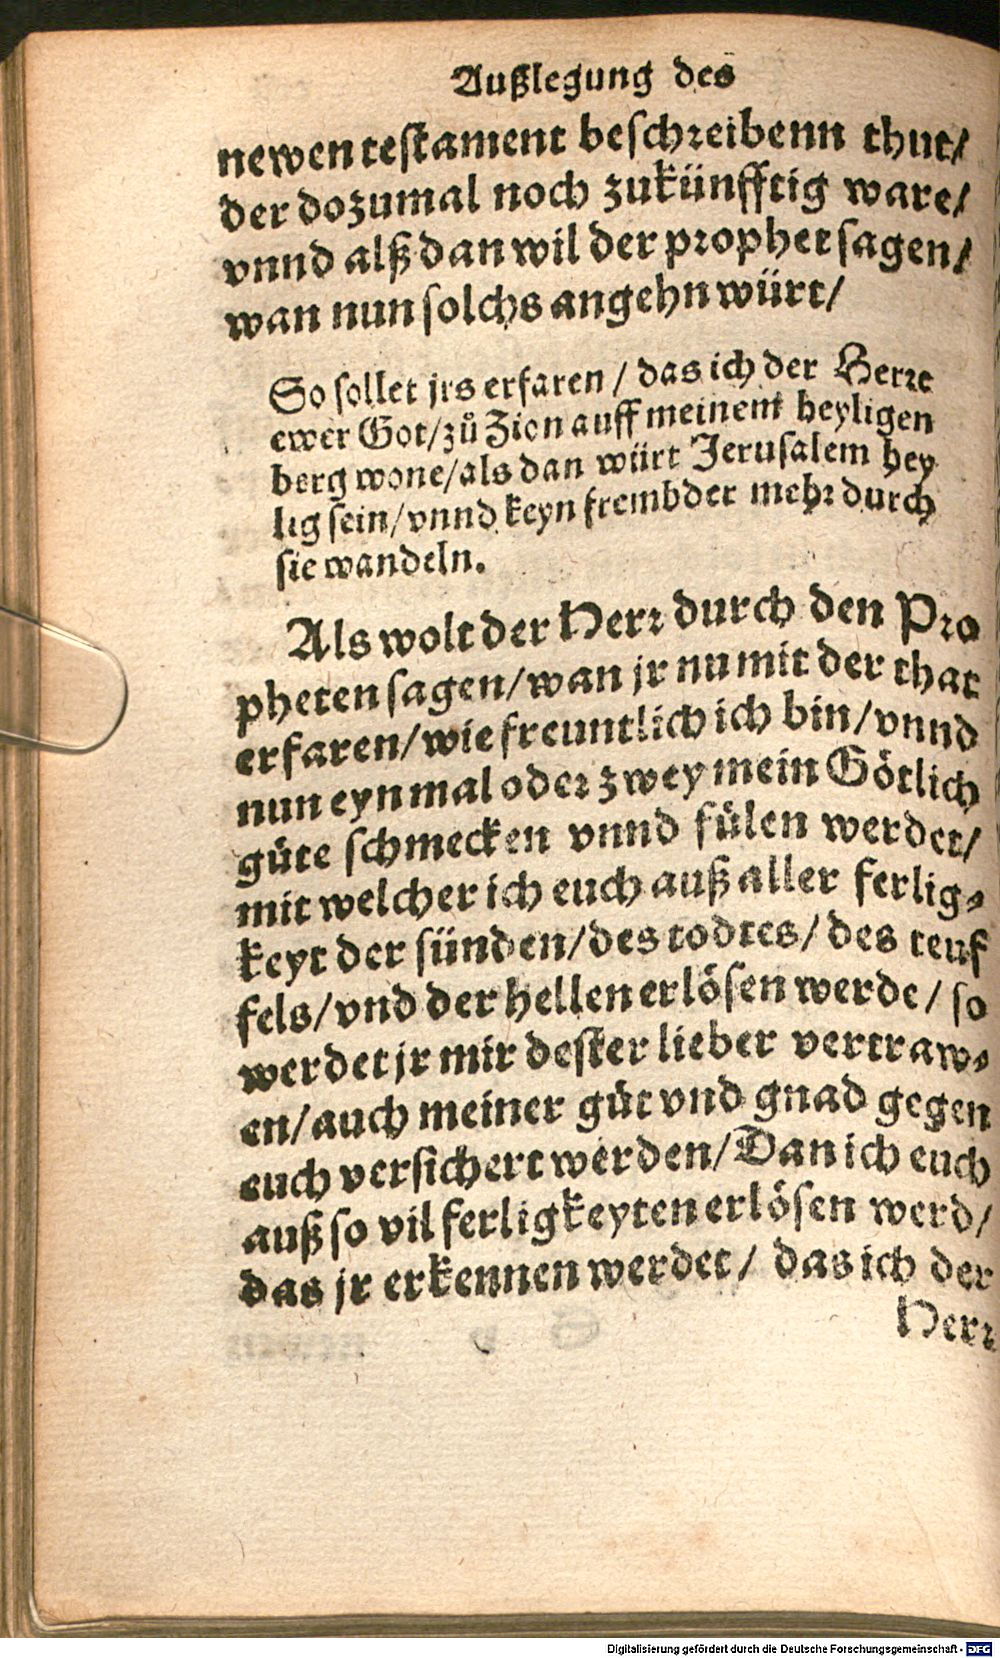 Außlegung des
newen testament beschreibenn thut/
der dozumal noch zukünfftig ware/
vnnd alß dan wil der prophet sagen/
wan nun solchs angehn würt/
So sollet jrs erfaren / das ich der Herre
ewer Got/zů Zion auff meinem heyligen
berg wone/als dan würt Jerusalem hey
lig sein/vnnd keyn frembder mehr durch
sie wandeln.
Als wolt der Herr durch den Pro
pheten sagen/wan jr nu mit der that
erfaren/wie freuntlich ich bin/vnnd
nun eyn mal oder zwey mein Götlich
güte schmecken vnnd fülen werdet/
mit welcher ich euch auß aller ferlig-
keyt der sünden/des todtes/des teuf
fels/vnd der hellen erlösen werde/ so
werdet jr mir dester lieber vertraw-
en/auch meiner güt vnd gnad gegen
euch versichert werden/Dan ich euch
auß so vil ferligkeyten erlösen werd/
das jr erkennen werdet/ das ich der
Herr
Digitalisierung gefördert durch die Deutsche Forschungsgemeinschaft - DFG